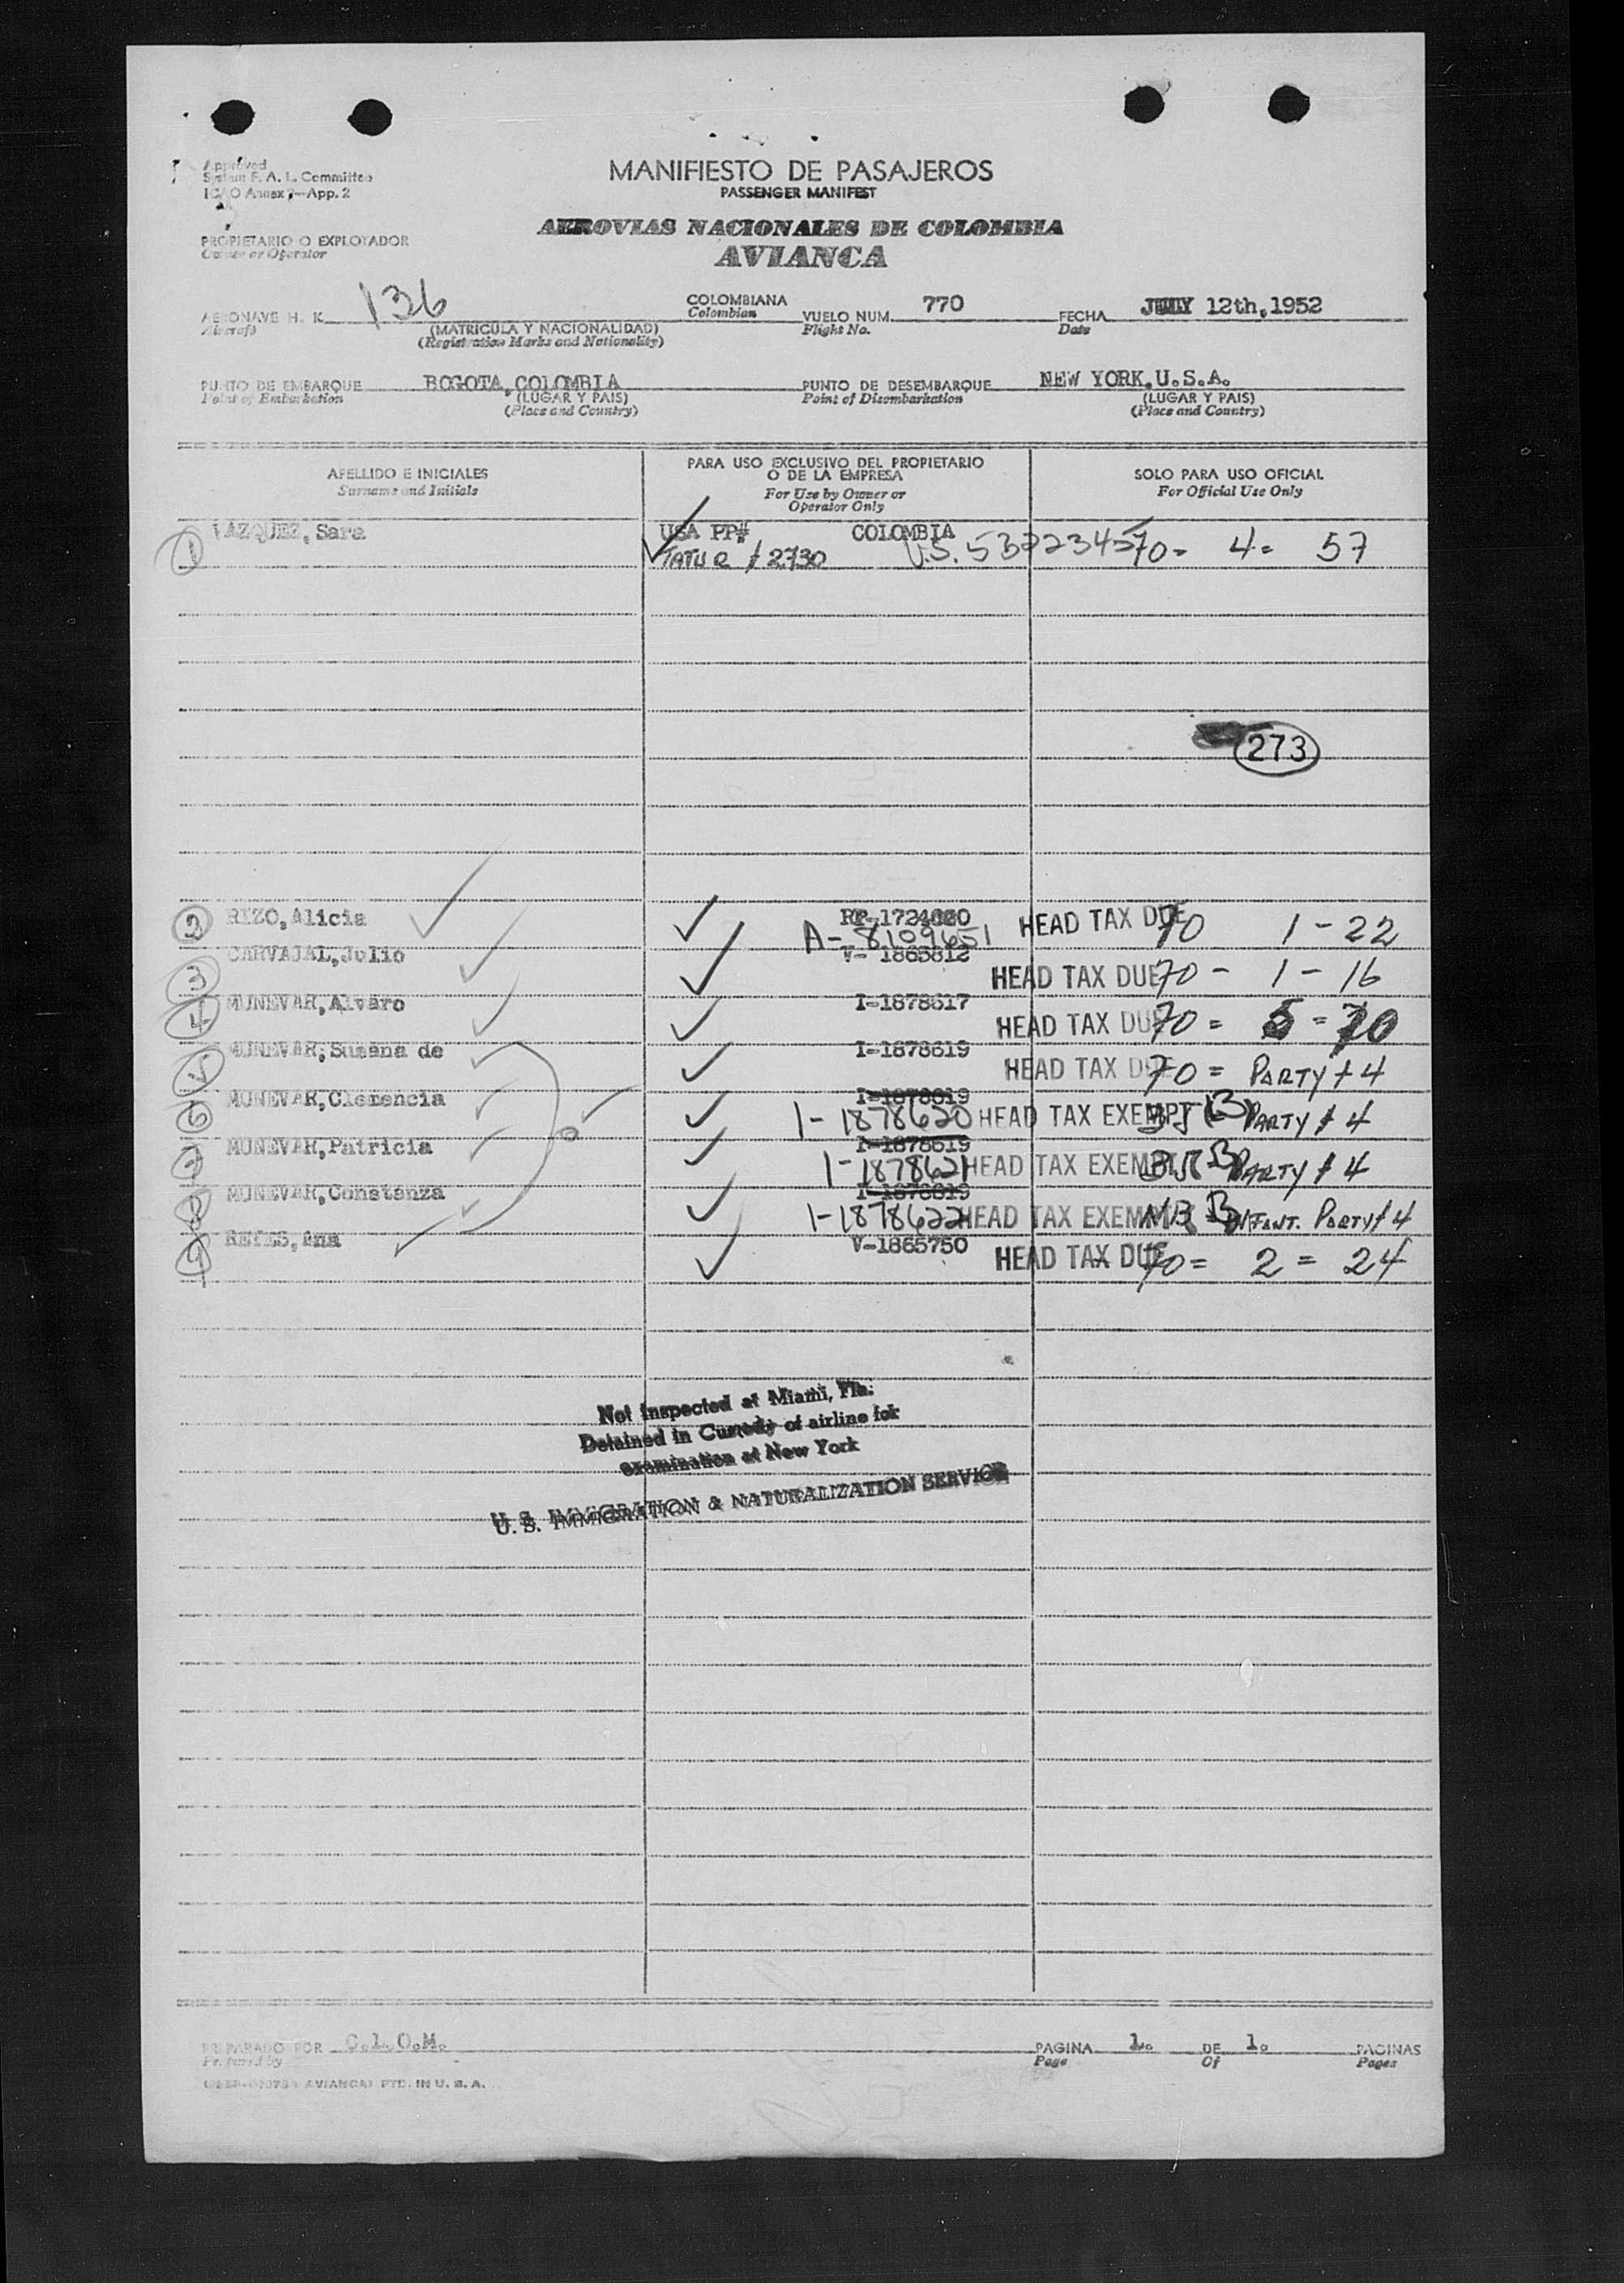 Approved
System F. A. L. Committee
ICAO Annex 9—App. 2
MANIFIESTO DE PASAJEROS
PASSENGER MANIFEST
PROPIETARIO O EXPLOTADOR
Owner or Operator
AEROVIAS NACIONALES DE COLOMBIA
AVIANCA
AERONAVE H. K. 136 COLOMBIANA VUELO NUM. 770 FECHA JULY 12th,1952
Aircraft (MATRICULA Y NACIONALIDAD) Colombian Flight No. Date
(Registration Marks and Nationality)
PUNTO DE EMBARQUE BOGOTA,COLOMBIA PUNTO DE DESEMBARQUE NEW YORK,U.S.A.
Point of Embarkation (LUGAR Y PAIS) Point of Disembarkation (LUGAR Y PAIS)
(Place and Country) (Place and Country)
APELLIDO E INICIALES PARA USO EXCLUSIVO DEL PROPIETARIO O DE LA EMPRESA SOLO PARA USO OFICIAL
Surname and Initials For Use by Owner or Operator Only For Official Use Only
1 VAZQUEZ,Sara USA PP# COLOMBIA
2730 U.S. 70= 4= 57
273
2 RIZO,Alicia HEAD TAX DUE 70 1-22
A-8109651
3 CARVAJAL,Julio V-1865812 HEAD TAX DUE 70 - 1 - 16
4 MUNEVAR,Alvaro I-1878617 HEAD TAX DUE 70 =
5 MUNEVAR,Susana de I-1878619 HEAD TAX DUE 70 = PARTY # 4
6 MUNEVAR,Clemencia I-1878619
I-1878620 HEAD TAX EXEMPT PARTY # 4
7 MUNEVAR,Patricia I-1878619
I-1878621 HEAD TAX EXEMPT PARTY # 4
8 MUNEVAR,Constanza I-1878619
I-1878622 HEAD TAX EXEMPT INFANT. PARTY # 4
9 REYES,Ana V-1865750 HEAD TAX DUE 70= 2 = 24
Not Inspected at Miami, Fla.
Detained in Custody of airline for
examination at New York
U. S. IMMIGRATION & NATURALIZATION SERVICE
PREPARADO POR C.L.O.M. PAGINA 1. DE 1. PAGINAS
Prepared by Page Of Pages
AVIANCA) PTD. IN U. S. A.